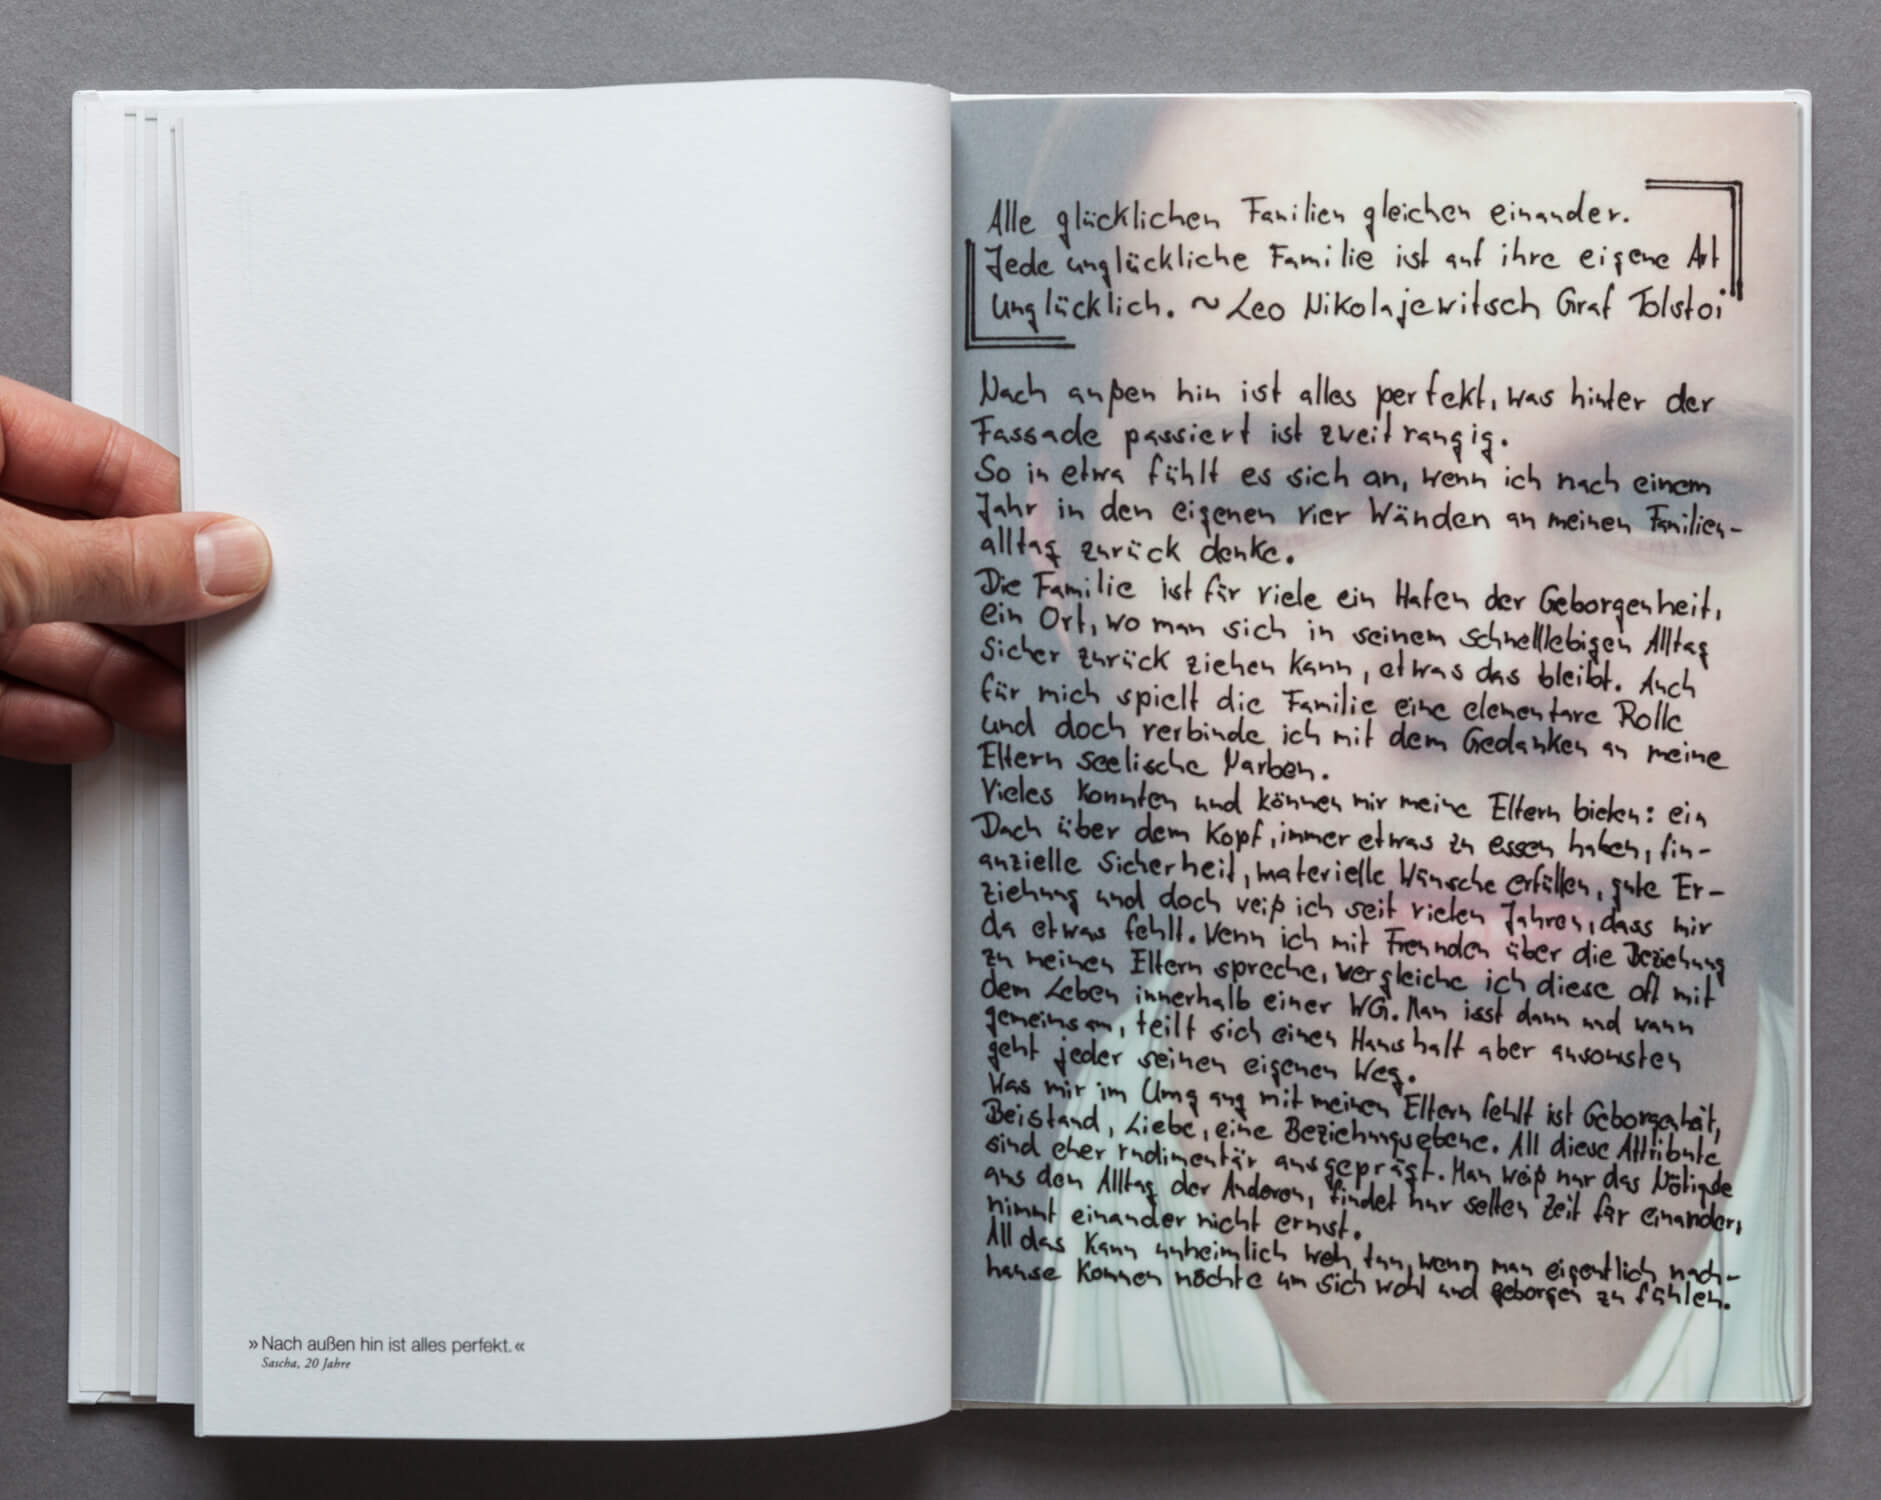 »Nach außen hin ist alles perfekt.«
Sascha, 20 Jahre
Alle glücklichen Familien gleichen einander.
Jede unglückliche Familie ist auf ihre eigene Art
Unglücklich. ~ Leo Nikolajewitsch Graf Tolstoi
Nach außen hin ist alles perfekt, was hinter der
Fassade passiert ist zweitrangig.
So in etwa fühlt es sich an, wenn ich nach einem
Jahr in den eigenen vier Wänden an meinen Familien-
alltag zurück denke.
Die Familie ist für viele ein Hafen der Geborgenheit,
ein Ort, wo man sich in seinem schnelllebigen Alltag
sicher zurück ziehen kann, etwas das bleibt. Auch
für mich spielt die Familie eine elementare Rolle
und doch verbinde ich mit dem Gedanken an meine
Eltern seelische Narben.
Vieles konnten und können mir meine Eltern bieten: ein
Dach über dem Kopf, immer etwas zu essen haben, fin-
anzielle Sicherheit, materielle Wünsche erfüllen, gute Er-
ziehung und doch weiß ich seit vielen Jahren, dass mir
da etwas fehlt. Wenn ich mit Freunden über die Beziehung
zu meinen Eltern spreche, vergleiche ich diese oft mit
dem Leben innerhalb einer WG. Man isst dann und wann
gemeinsam, teilt sich einen Haushalt aber ansonsten
geht jeder seinen eigenen Weg.
Was mir im Umgang mit meinen Eltern fehlt ist Geborgenheit,
Beistand, Liebe, eine Beziehungsebene. All diese Attribute
sind eher rudimentär ausgeprägt. Man weiß nur das Nötigste
aus dem Alltag der Anderen, findet nur selten Zeit für einander,
nimmt einander nicht ernst.
All das kann unheimlich weh tun, wenn man eigentlich nach-
hause kommen möchte um sich wohl und geborgen zu fühlen.